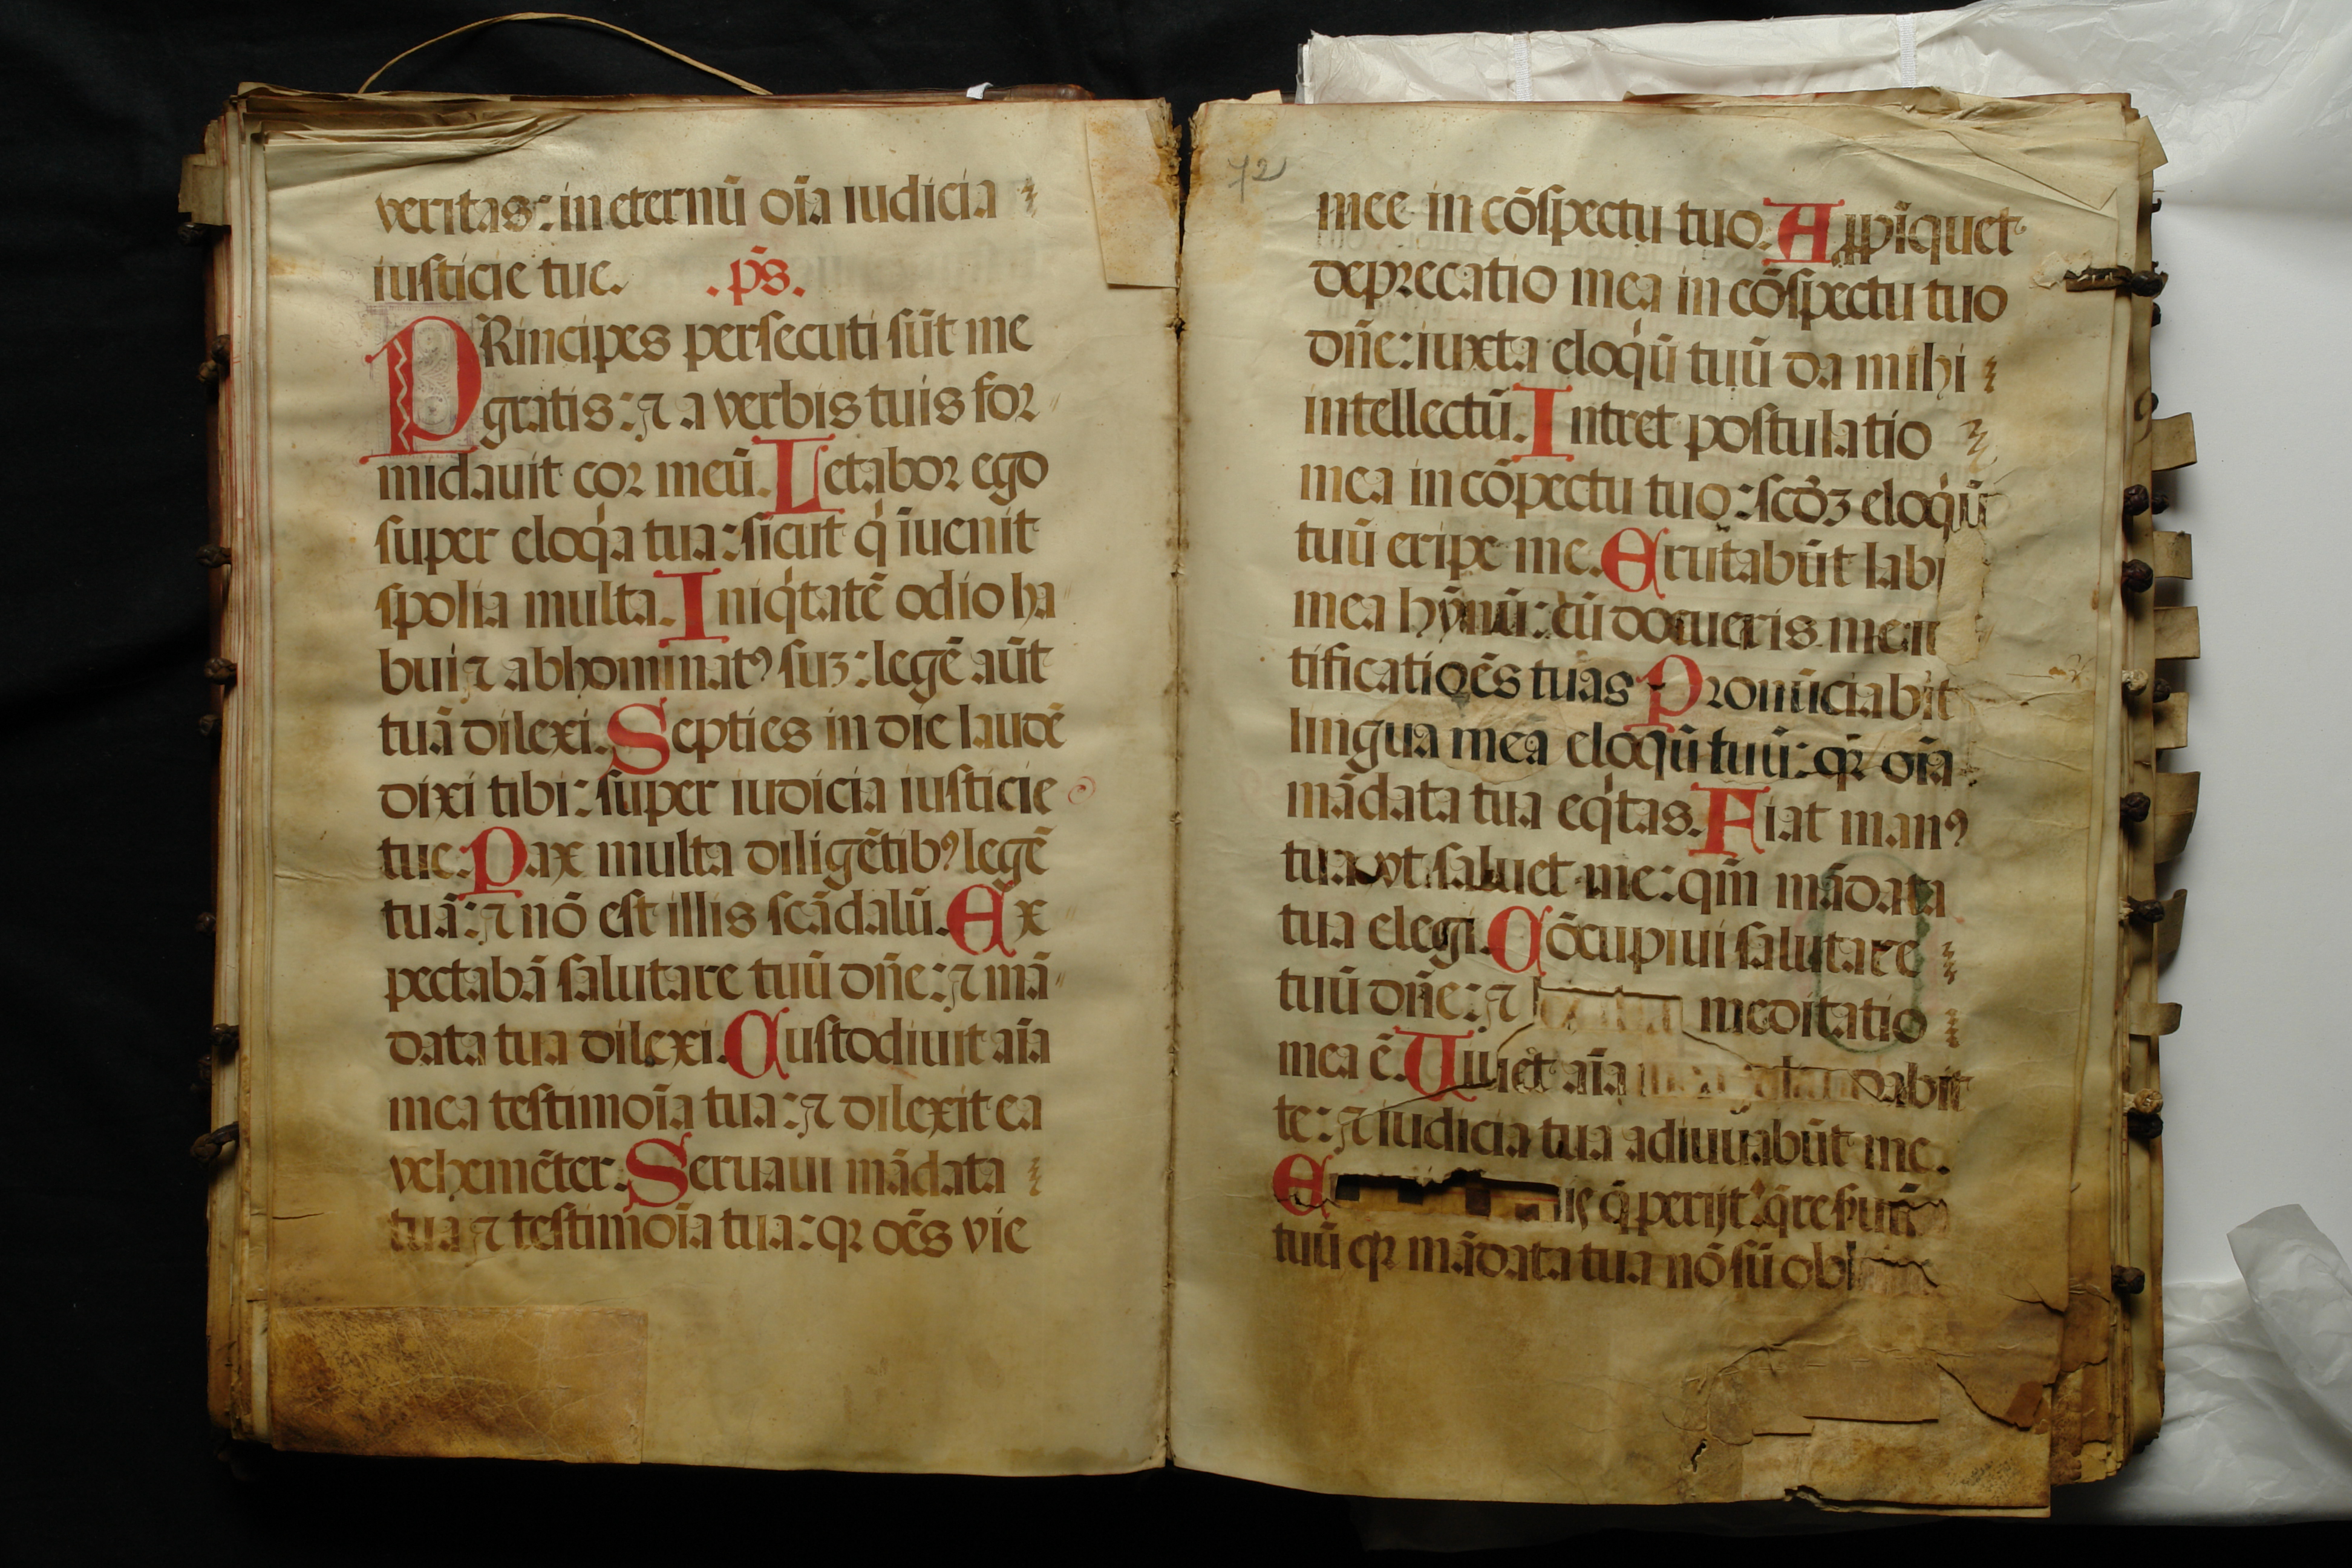 veritas: in eternū oīa iudicia
iusticie tue. .ps̄.
PRincipes persecuti sūt me
gratis: ⁊ a verbis tuis for
midauit cor meū. Letabor ego
super eloq̍a tua: sicut q̍ īuenit
spolia multa. Iniq̍tatē odio ha
bui ⁊ abhominatꝰ suꝫ: legē aūt
tuā dilexi. Septies in die laudē
dixi tibi: super iudicia iusticie
tue. Pax multa diligētibꝰ legē
tuā: ⁊ nō est illis scādalū. Ex
pectabā salutare tuū dn̄e: ⁊ mā
data tua dilexi. Custodiuit aīa
mea testimoīa tua: ⁊ dilexit ea
vehemēter. Seruaui mādata
tua ⁊ testimoīa tua: qꝛ oēs vie
72
mee in cōspectu tuo. Aꝓpīquet
deprecatio mea in cōspectu tuo
dn̄e: iuxta eloq̍ū tuū da mihi
intellectū. Intret postulatio
mea in cōpectu tuo: scd̄ꝫ eloq̍ū
tuū eripe me. Erutabūt labi
mea hȳnū: cū docueris me
tificatioēs tuas Pronūciabit
lingua mea eloqū tuū: qꝛ oīa
mādata tua eq̍tas. Fiat manꝰ
tua vt saluet me: qm̄ mādata
tua elegi. Cōcupiui salutare
tuū dn̄e: ⁊ meditatio
mea ē. Uiuet aīa dabit
te: ⁊ iudicia tua adiuuabūt me.
E q̄ perijt: q̄re
tuū qꝛ mādata tua nō sū